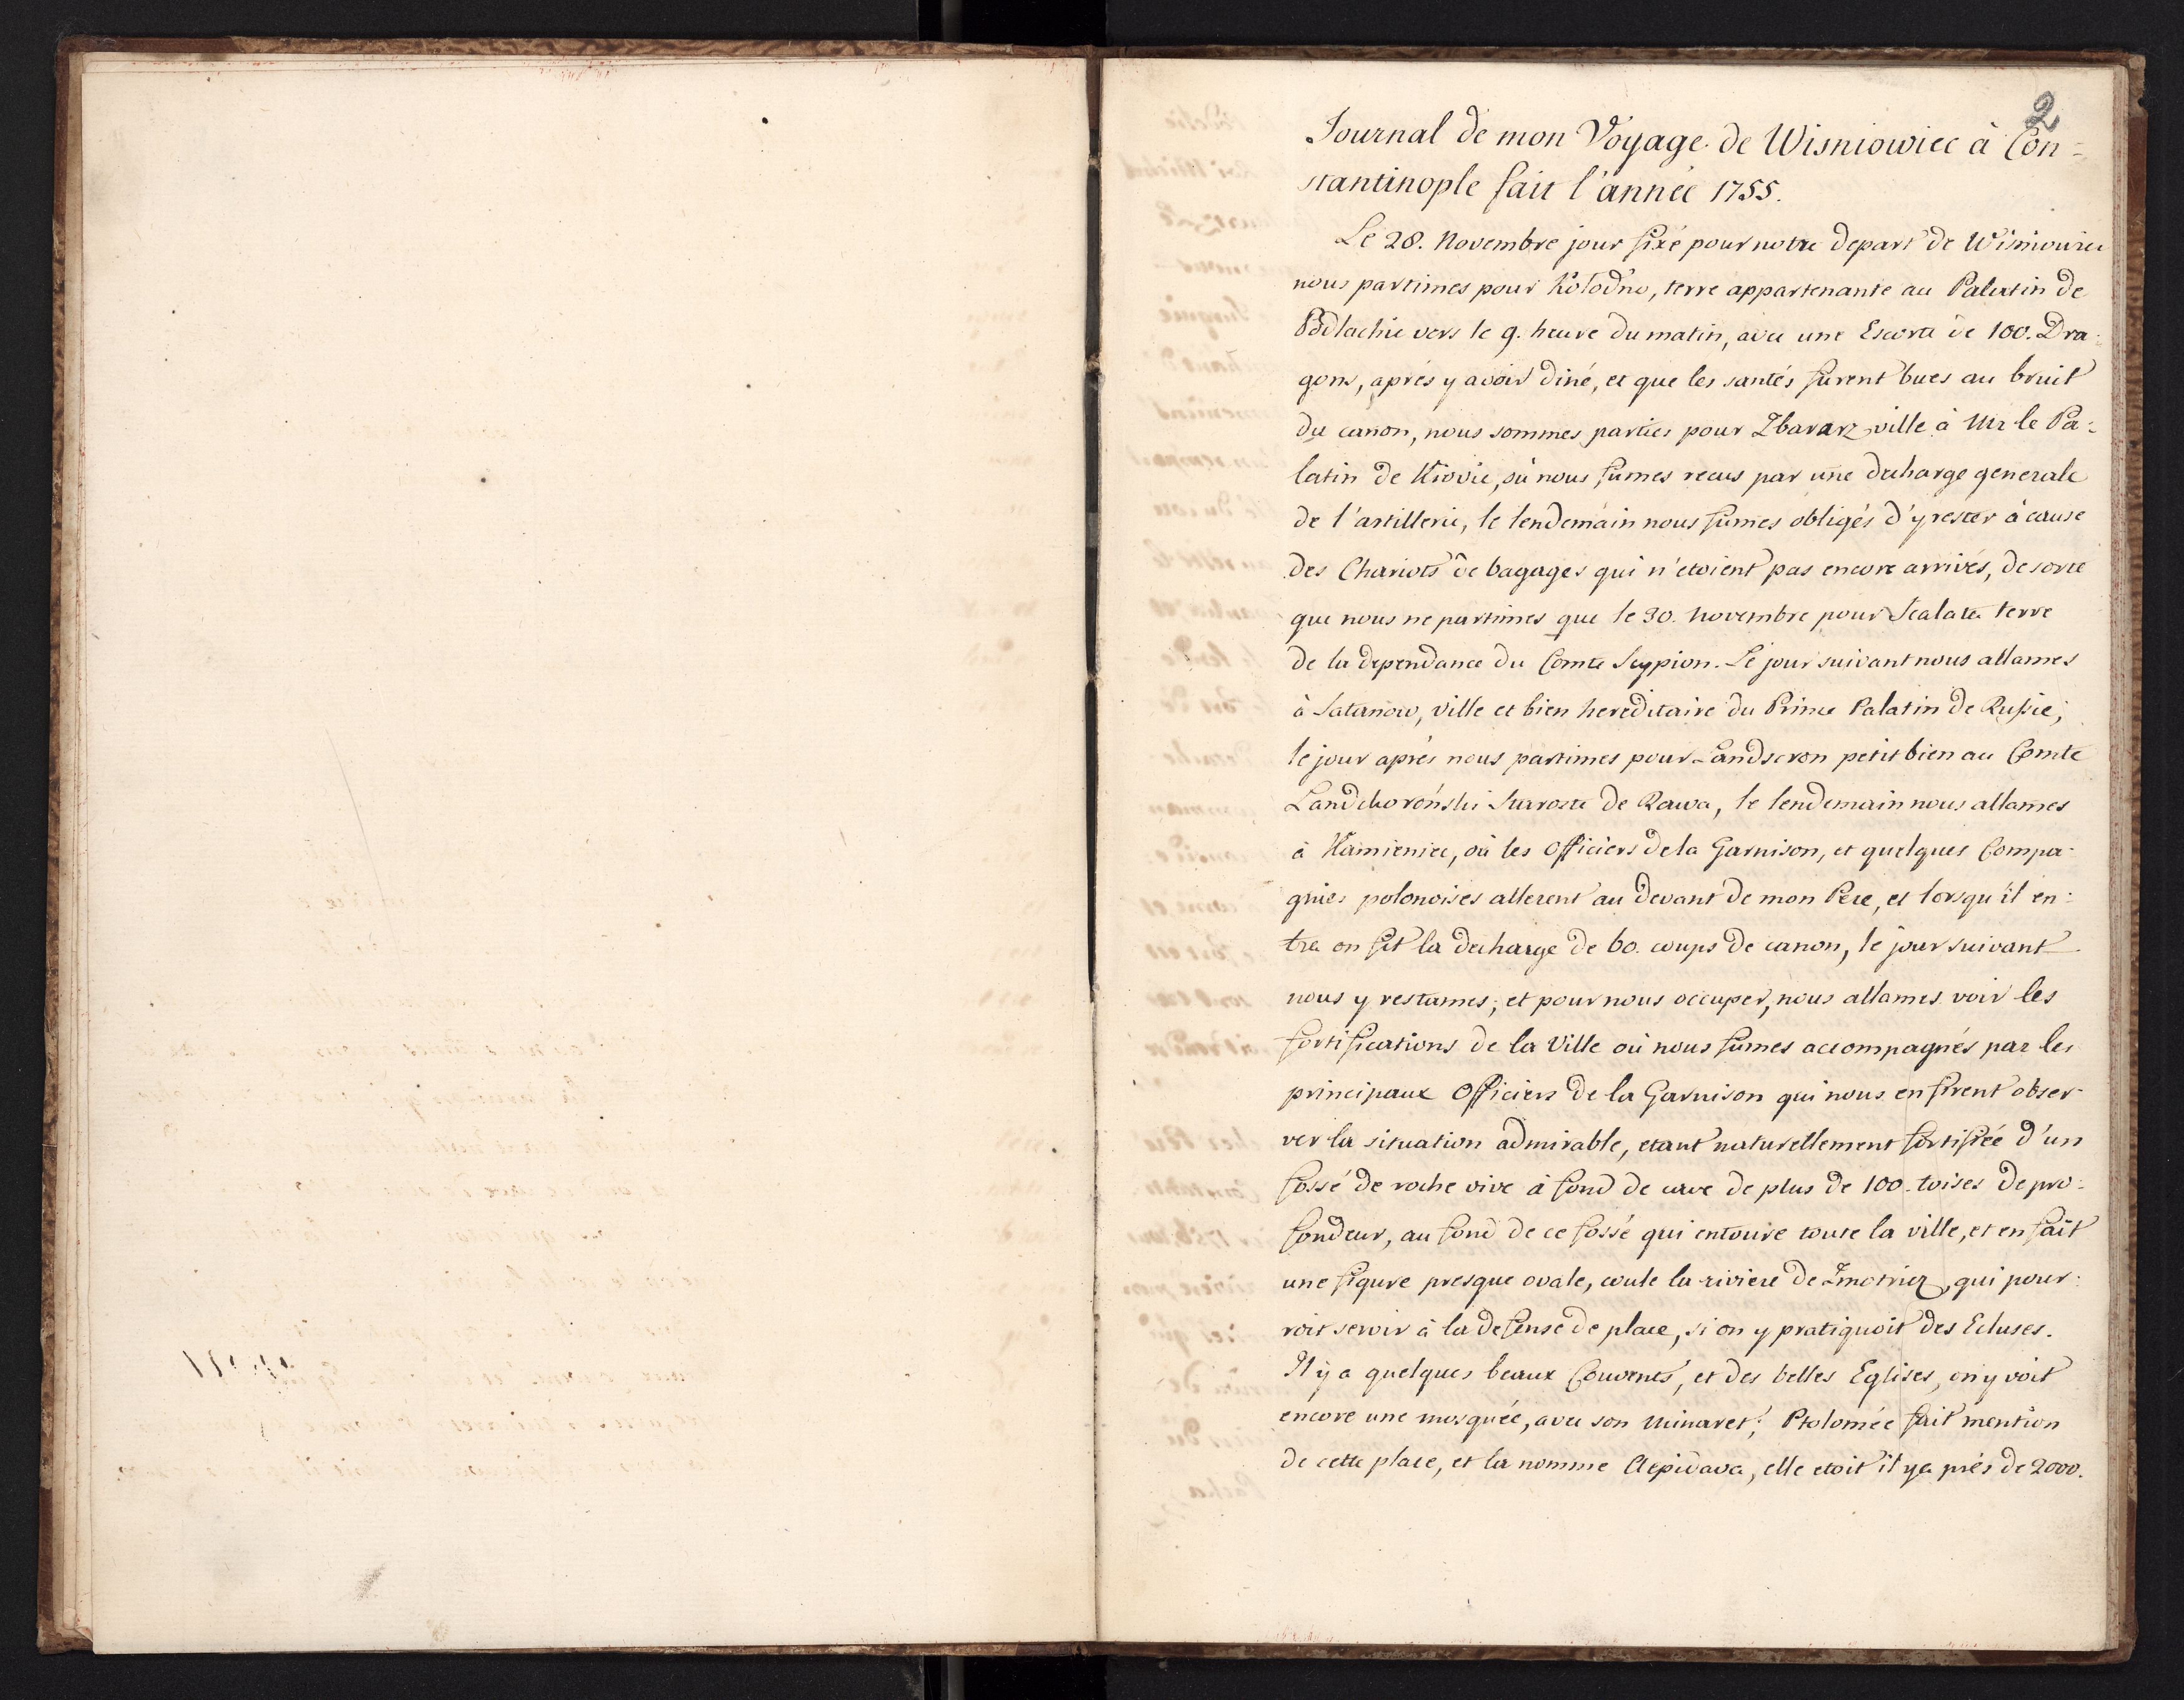 2
Journal de mon Voyage de Wisniowiec à Con=
stantinople fait l'année 1755.
Le 28. Novembre jour fixé pour notre depart de Wisniowiec
nous partimes pour Kołodno, terre appartenante au Palatin de
Podlachie vers le 9. heure du matin, avec une Escorte de 100. Dra=
gons, après y avoir diné, et que les santés furent bues au bruit
du canon, nous sommes parties pour Zbararz ville à Mr le Pa=
latin de Kiovie, où nous fumes recus par une decharge generale
de l'artillerie, le lendemain nous fumes obligés d'y rester à cause
des Chariots de bagages qui n'etoient pas encore arrivés, de sorte
que nous ne partimes que le 30. Novembre pour Scalate terre
de la dependance du Comte Scypion. Le jour suivant nous allames
à Satanow, ville et bien hereditaire du Prince Palatin de Russie;
le jour après nous partimes pour Landscron petit bien au Comte
Landckoroński Staroste de Rawa, le lendemain nous allames
à Kamieniec, où les Officiers de la Garnison, et quelques Compa=
gnies polonoises allerent au devant de mon Pere, et lorsqu'il en=
tra on fit la decharge de 60. coups de canon, le jour suivant
nous y restames; et pour nous occuper, nous allames voir les
fortifications de la Ville où nous fumes accompagnés par les
principaux Officiers de la Garnison qui nous en firent obser=
ver la situation admirable, etant naturellement fortifiée d'un
fossé de roche vive à fond de cuve de plus de 100. toises de pro=
fondeur, au fond de ce fossé qui entoure toute la ville, et en fait
une figure presque ovale, coule la riviere de Zmotricz, qui pour=
roit servir à la defense de place, si on y pratiquoit des Ecluses.
Il y a quelques beaux Couvents, et des belles Eglises, on y voit
encore une mosquée, avec son Minaret; Ptolomée fait mention
de cette place, et la nomme Clepidava, elle etoit il y a près de 2000.